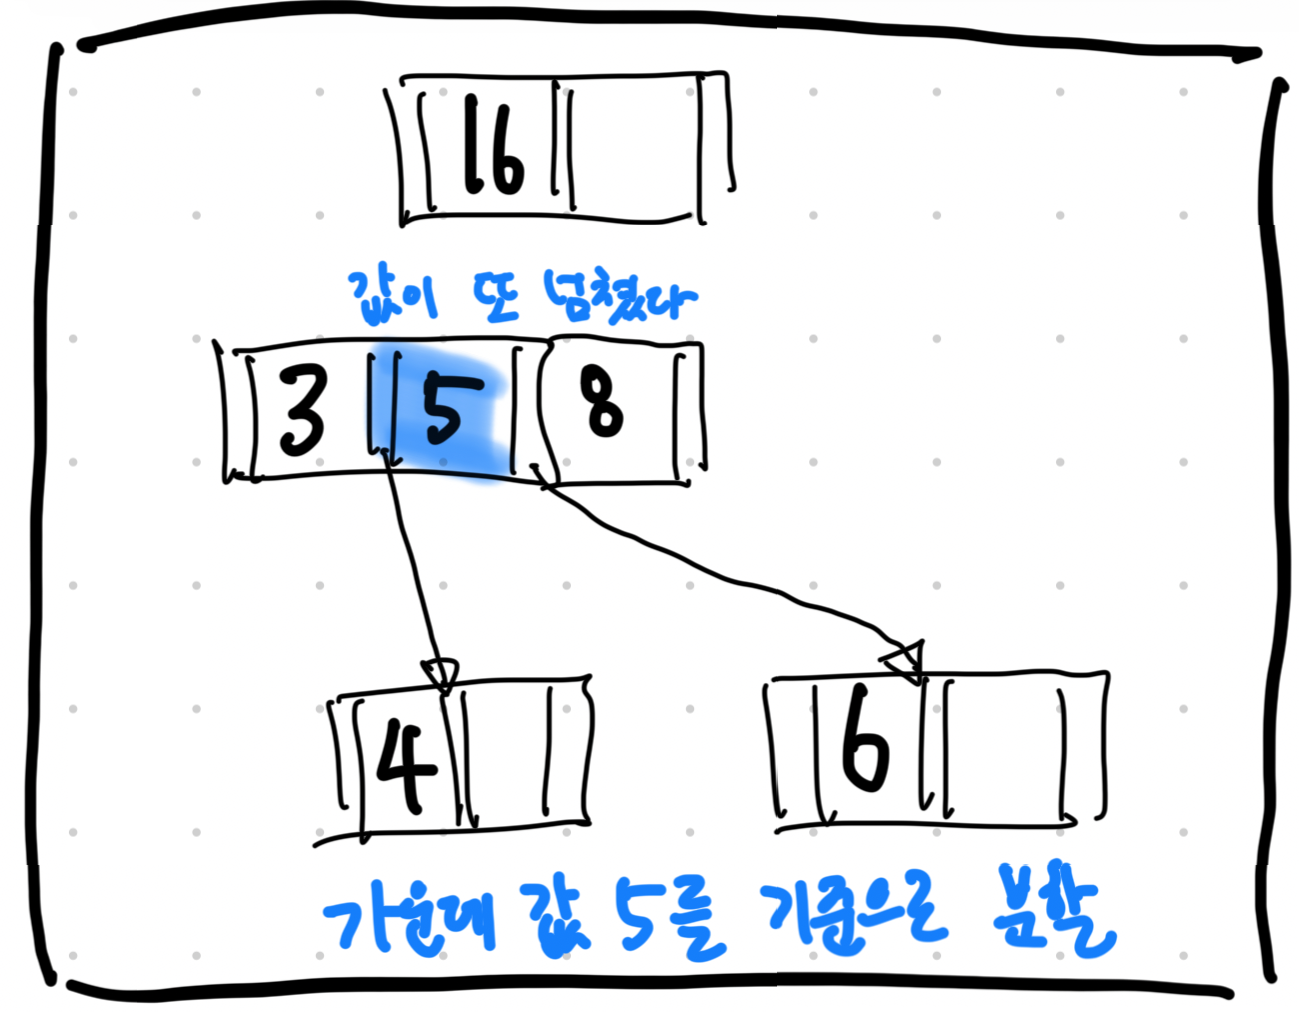 16
값이 또 넘쳤다
3 5 8
4 6
가운데 값 5를 기준으로 분할